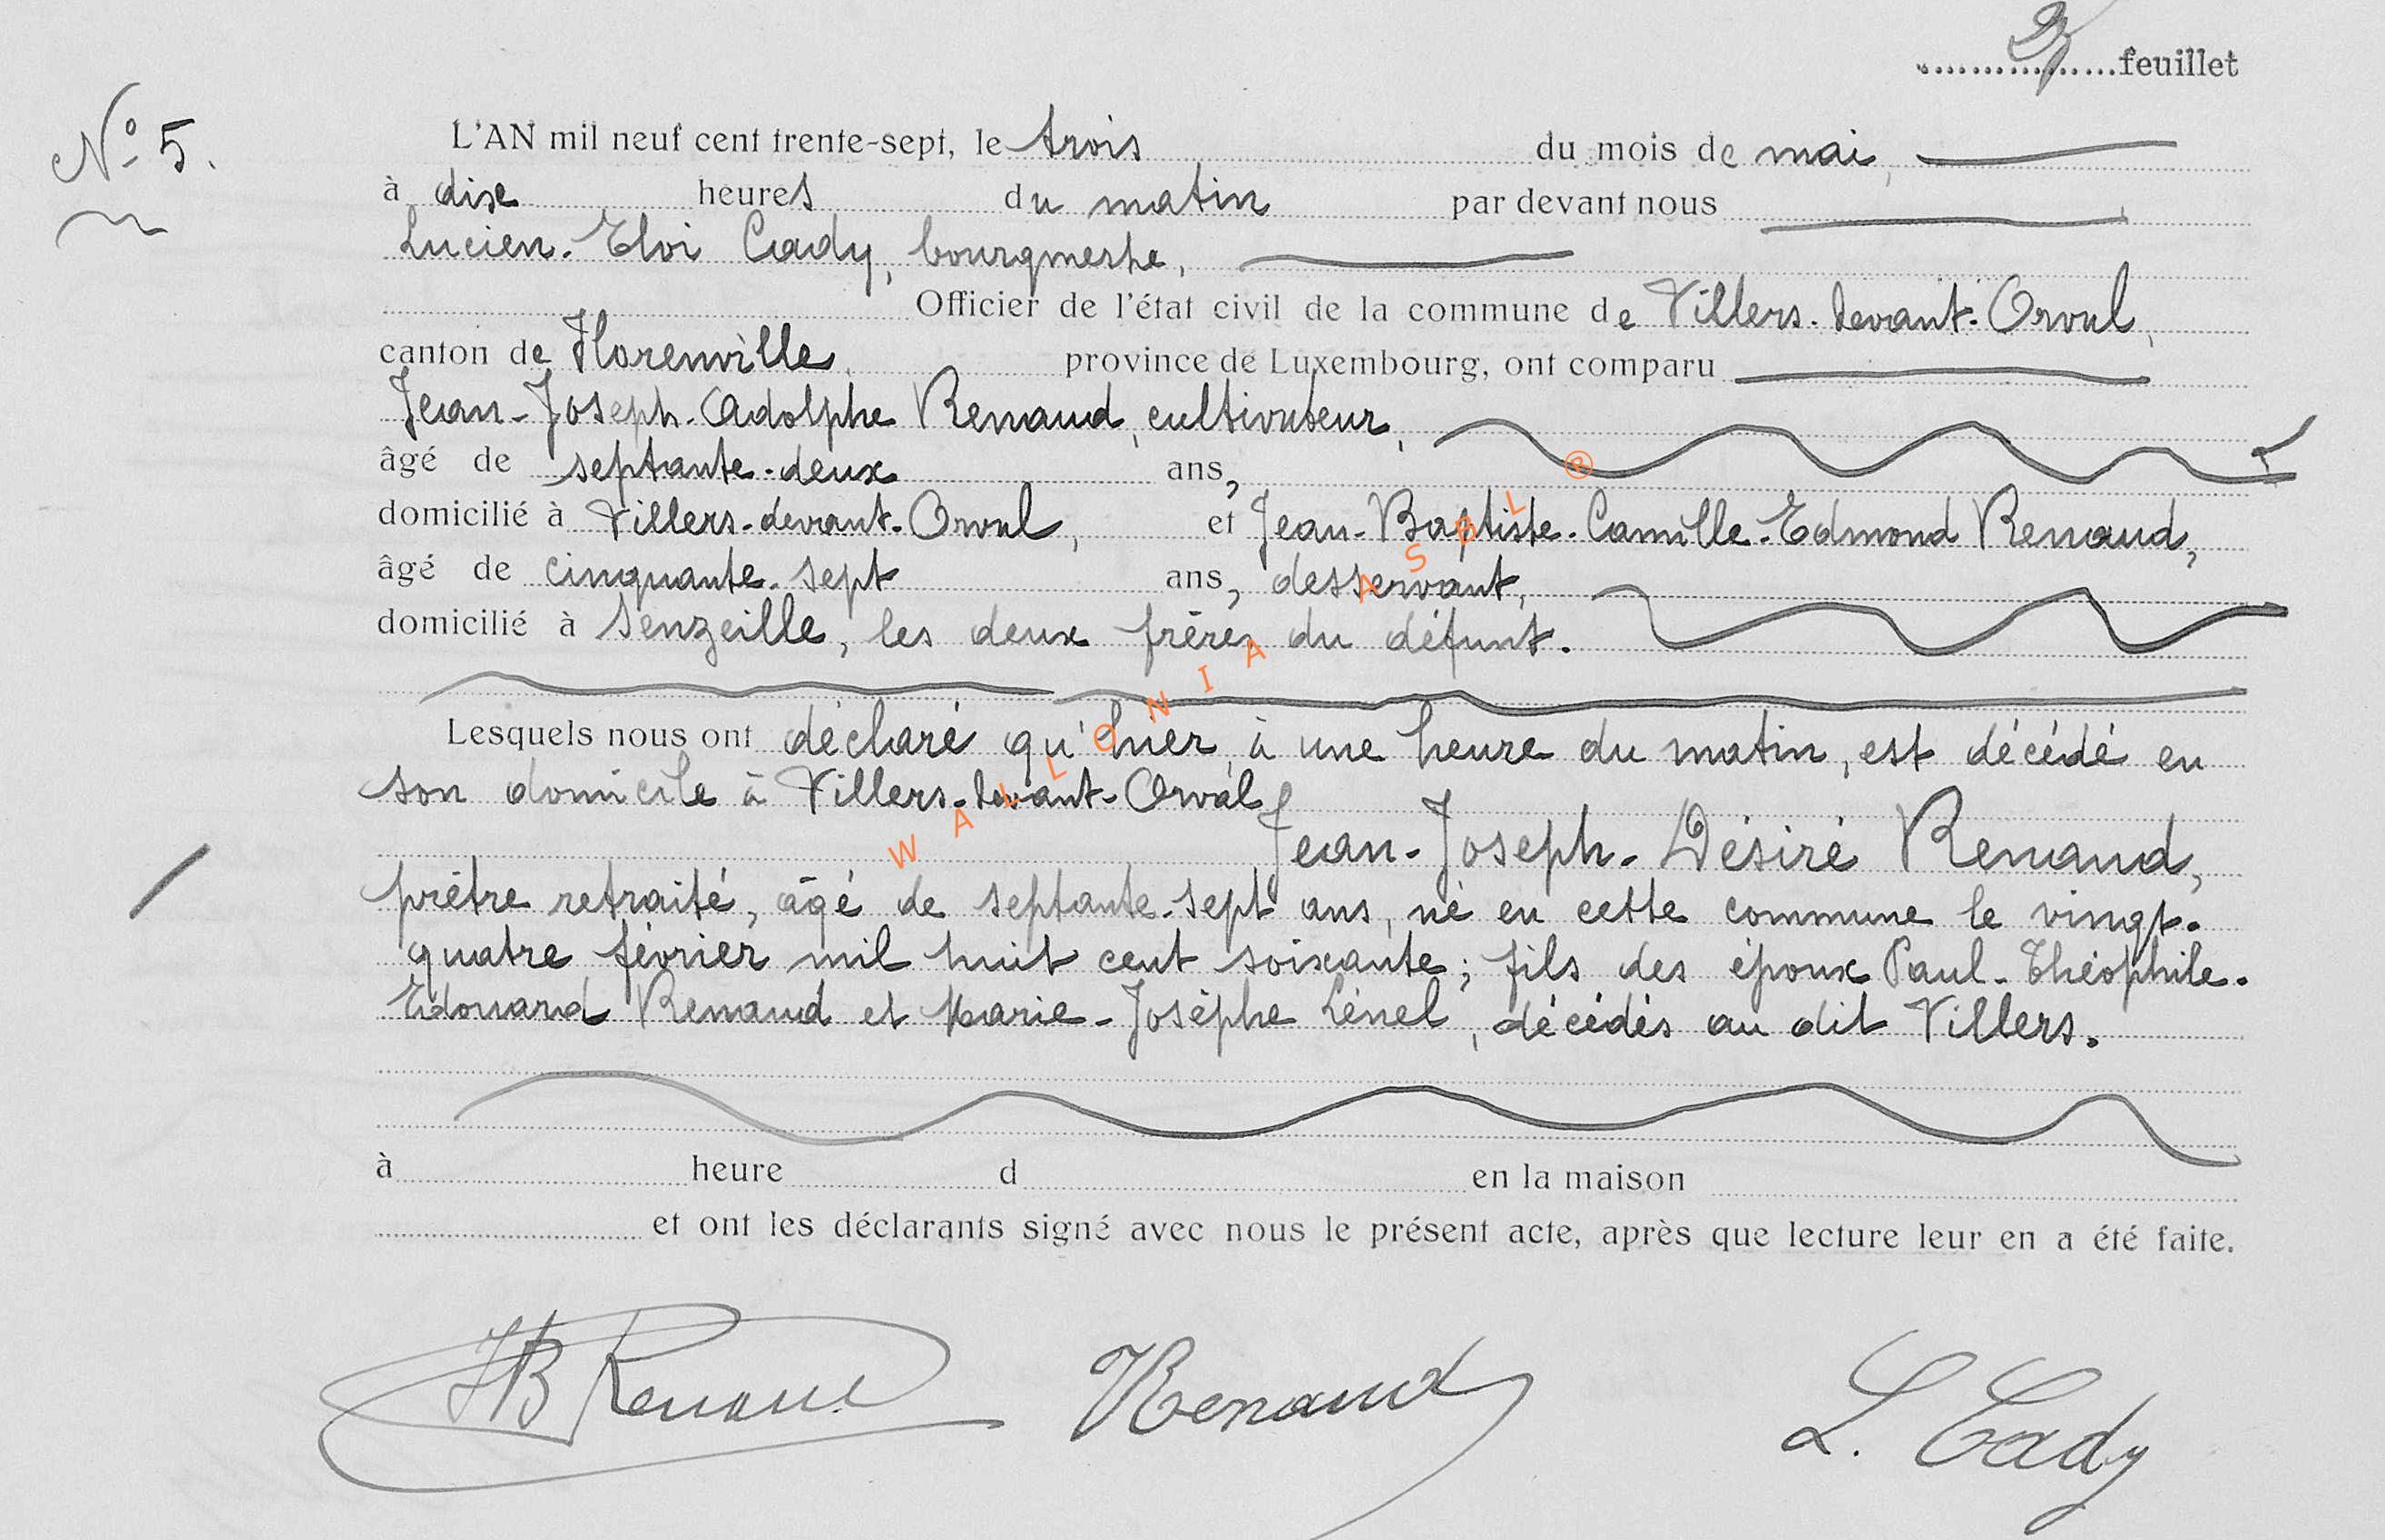 3 feuillet
N° 5.
L'AN mil neuf cent trente-sept, le trois du mois de mai,
à dix heures du matin par devant nous
Lucien-Eloi Cady, bourgmestre,
Officier de l'état civil de la commune de Villers-devant-Orval,
canton de Florenville, province de Luxembourg, ont comparu
Jean-Joseph-Adolphe Renaud, cultivateur,
âgé de septante-deux ans,
domicilié à Villers-devant-Orval, et Jean-Baptiste-Camille-Edmond Renaud,
âgé de cinquante-sept ans, desservant,
domicilié à Senzeille, les deux frères du défunt.
Lesquels nous ont déclaré qu'hier, à une heure du matin, est décédé en
son domicile à Villers-devant-Orval
Jean-Joseph-Désiré Renaud,
prêtre retraité, âgé de septante-sept ans, né en cette commune le vingt-
quatre février mil huit cent soixante; fils des époux Paul-Théophile-
Edouard Renaud et Marie-Josèphe Lénel, décédés au dit Villers.
à heure d en la maison
et ont les déclarants signé avec nous le présent acte, après que lecture leur en a été faite.
JB Renaud Renaud L. Cady
WALLONIA ASBL ®